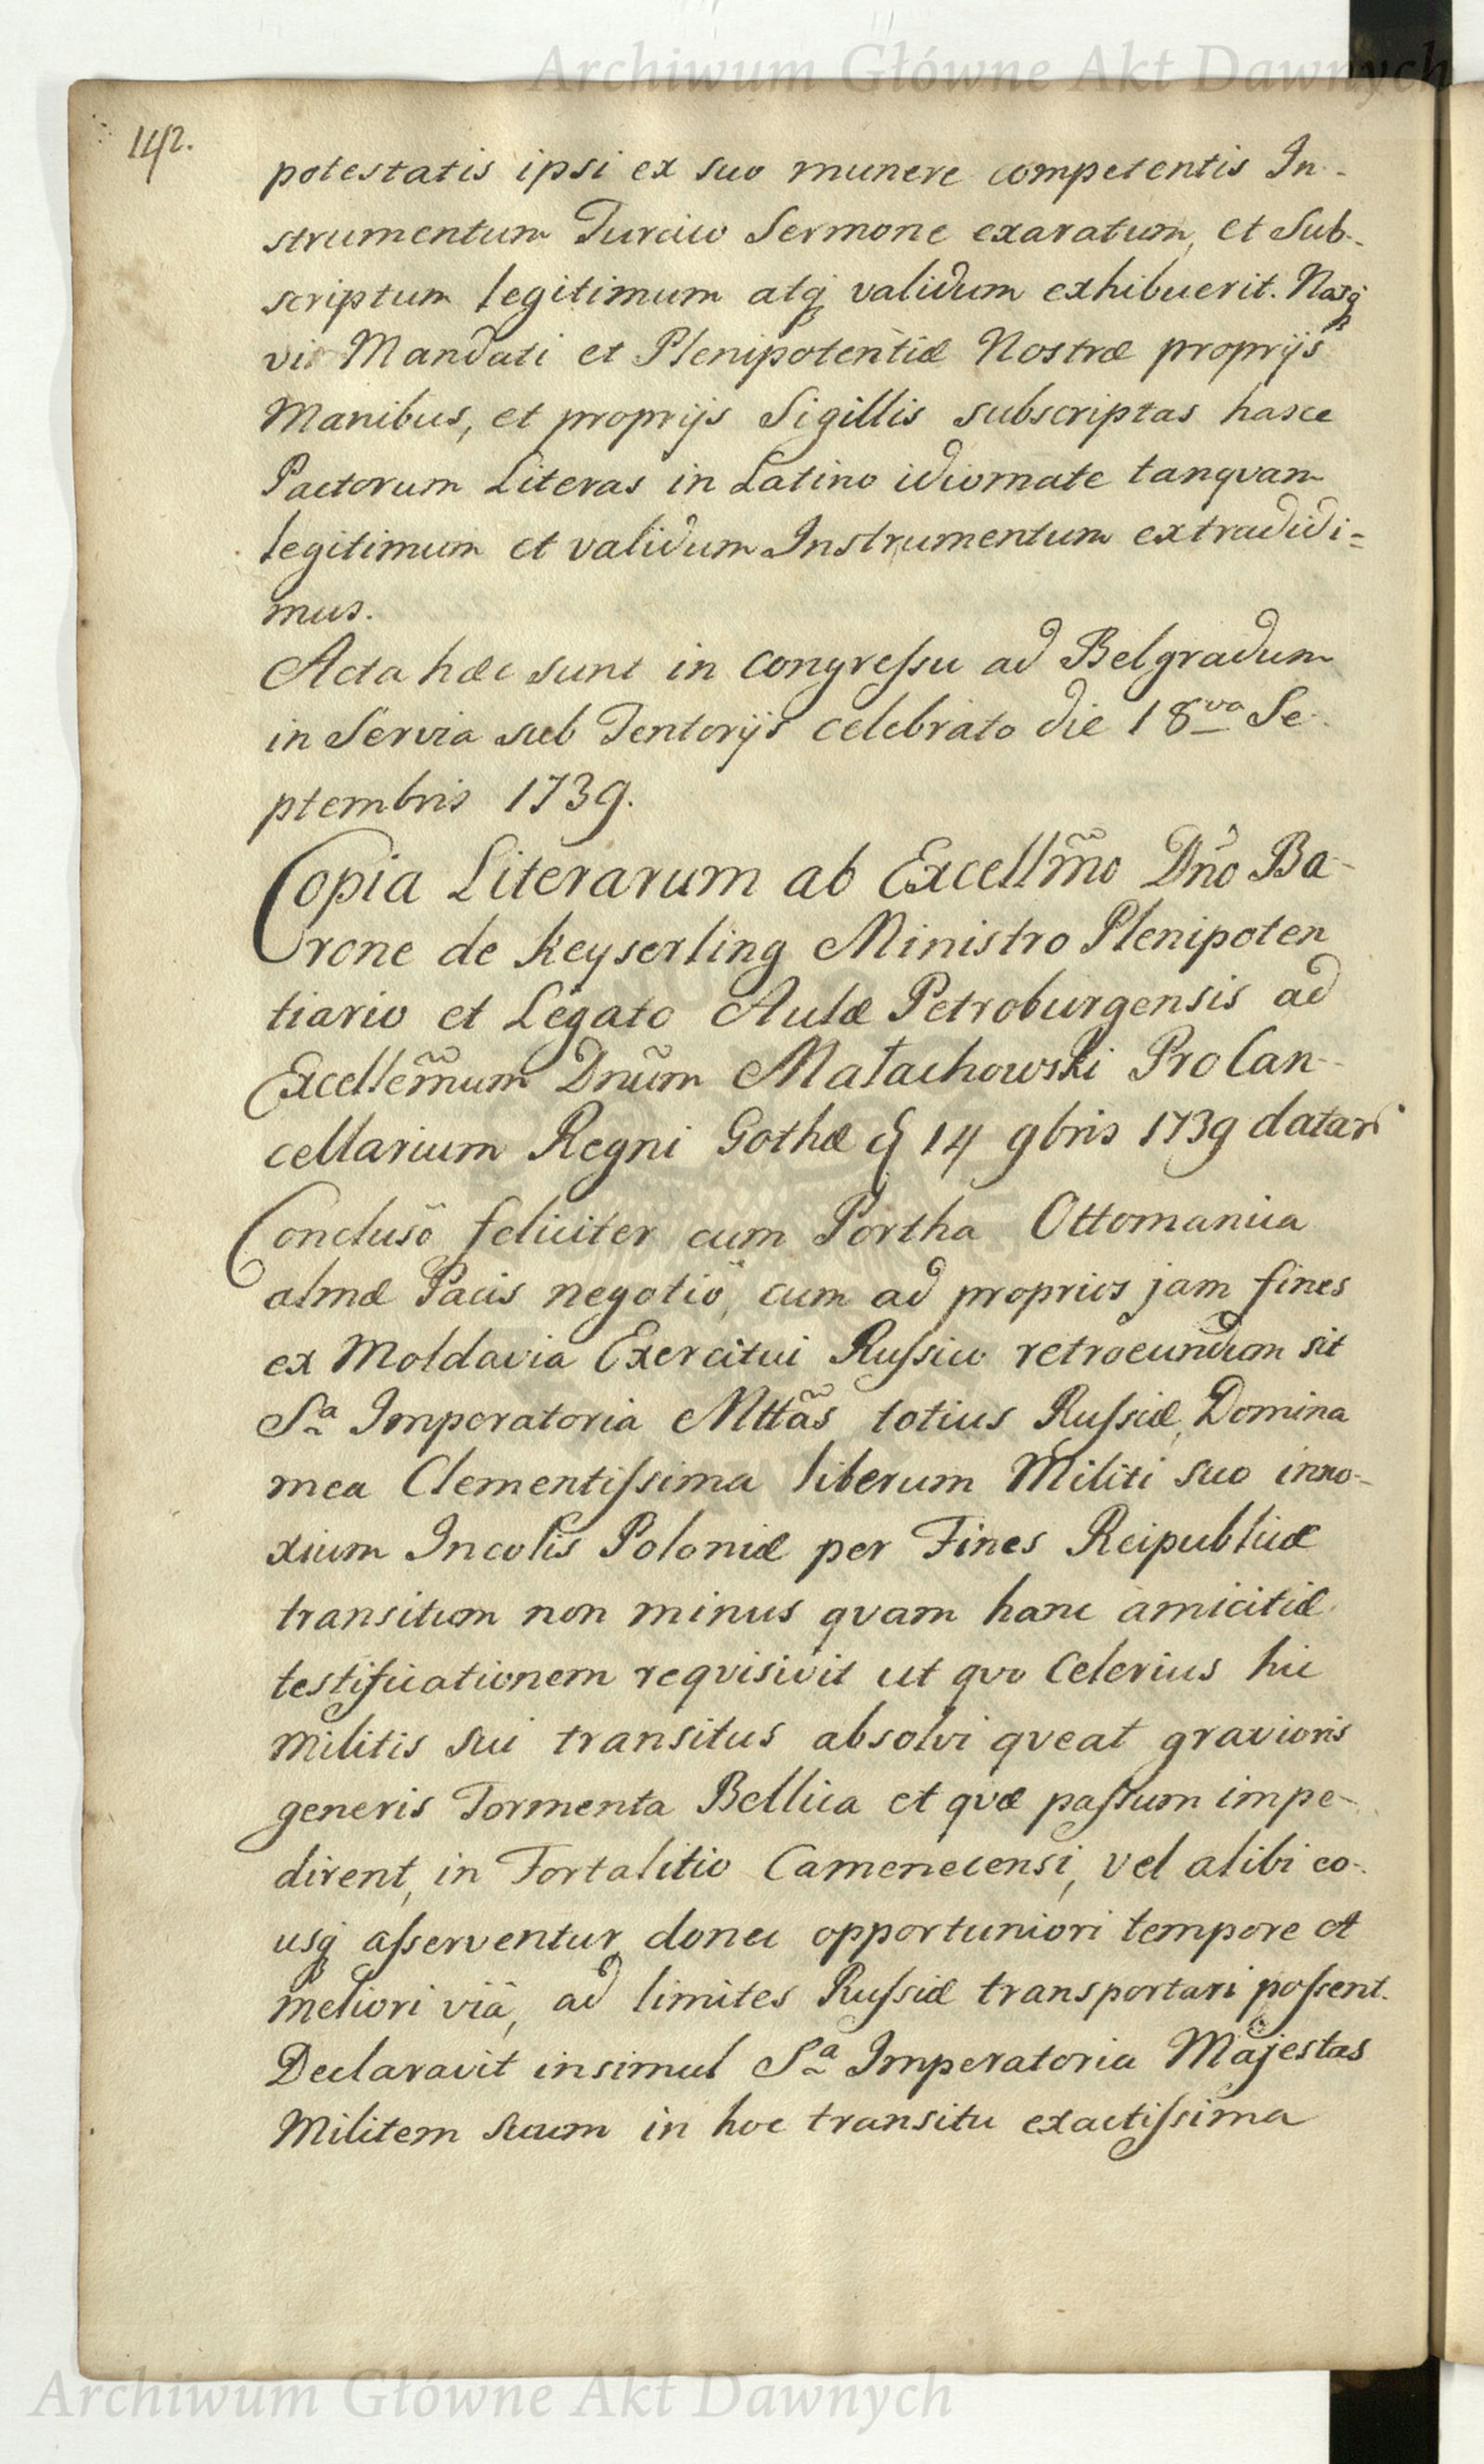 Archiwum Główne Akt Dawnych
142.
potestatis ipsi ex suo munere competentis In-
strumentum Turcico Sermone exaratum, et Sub-
scriptum legitimum atq validum exhibuerit. Nosq
vi Mandati et Plenipotentiæ Nostræ proprijs
Manibus, et proprijs Sigillis subscriptas hasce
Pactorum Literas in Latino idiomate tanqvam
legitimum et validum Instrumentum extradidi=
mus.
Acta hæc sunt in Congressu ad Belgradum
in Servia sub Tentorijs celebrato die 18va Se-
ptembris 1739.
Copia Literarum ab Excellm̃o Dno Ba-
rone de Keyserling Ministro Plenipoten
tiario et Legato Aulæ Petroburgensis ad
Excellem̃um Dnũm Małachowski ProCan-
cellarium Regni Gothæ 14 9bris 1739 datar
Conclusô feliciter cum Portha Ottomanica
almæ Pacis negotiô, cum ad proprios jam fines
ex Moldavia Exercitui Russico retroeundum sit
Sa Imperatoria Mttãs totius Russiæ, Domina
mea Clementissima liberum Militi suo inno-
xium Incolis Poloniæ per Fines Reipublicæ
transitum non minus qvam hanc amicitiæ
testificationem reqvisivit ut qvo celerius hic
Militis sui transitus absolvi qveat gravioris
generis Tormenta Bellica et qvæ passum impe-
dirent, in Fortalitio Camenecensi, vel alibi eo-
usq asserventur donec opportuniori tempore et
meliori viâ, ad limites Russiæ transportari possent.
Declaravit insimul Sa Imperatoria Majestas
Militem suum in hoc transitu exactissima
Archiwum Główne Akt Dawnych